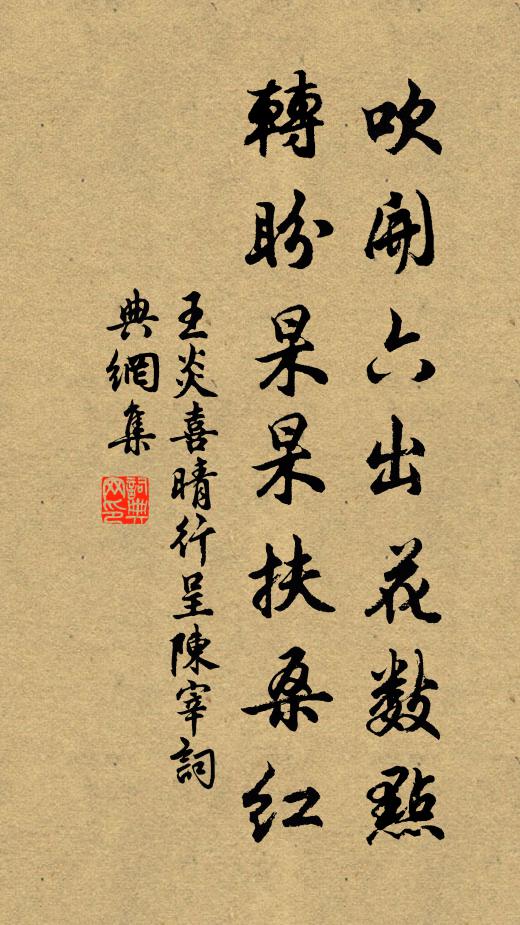 吹開六出花數點
轉盼杲杲扶桑红
王炎喜晴行呈陳宰詞
典網集
詞典网印